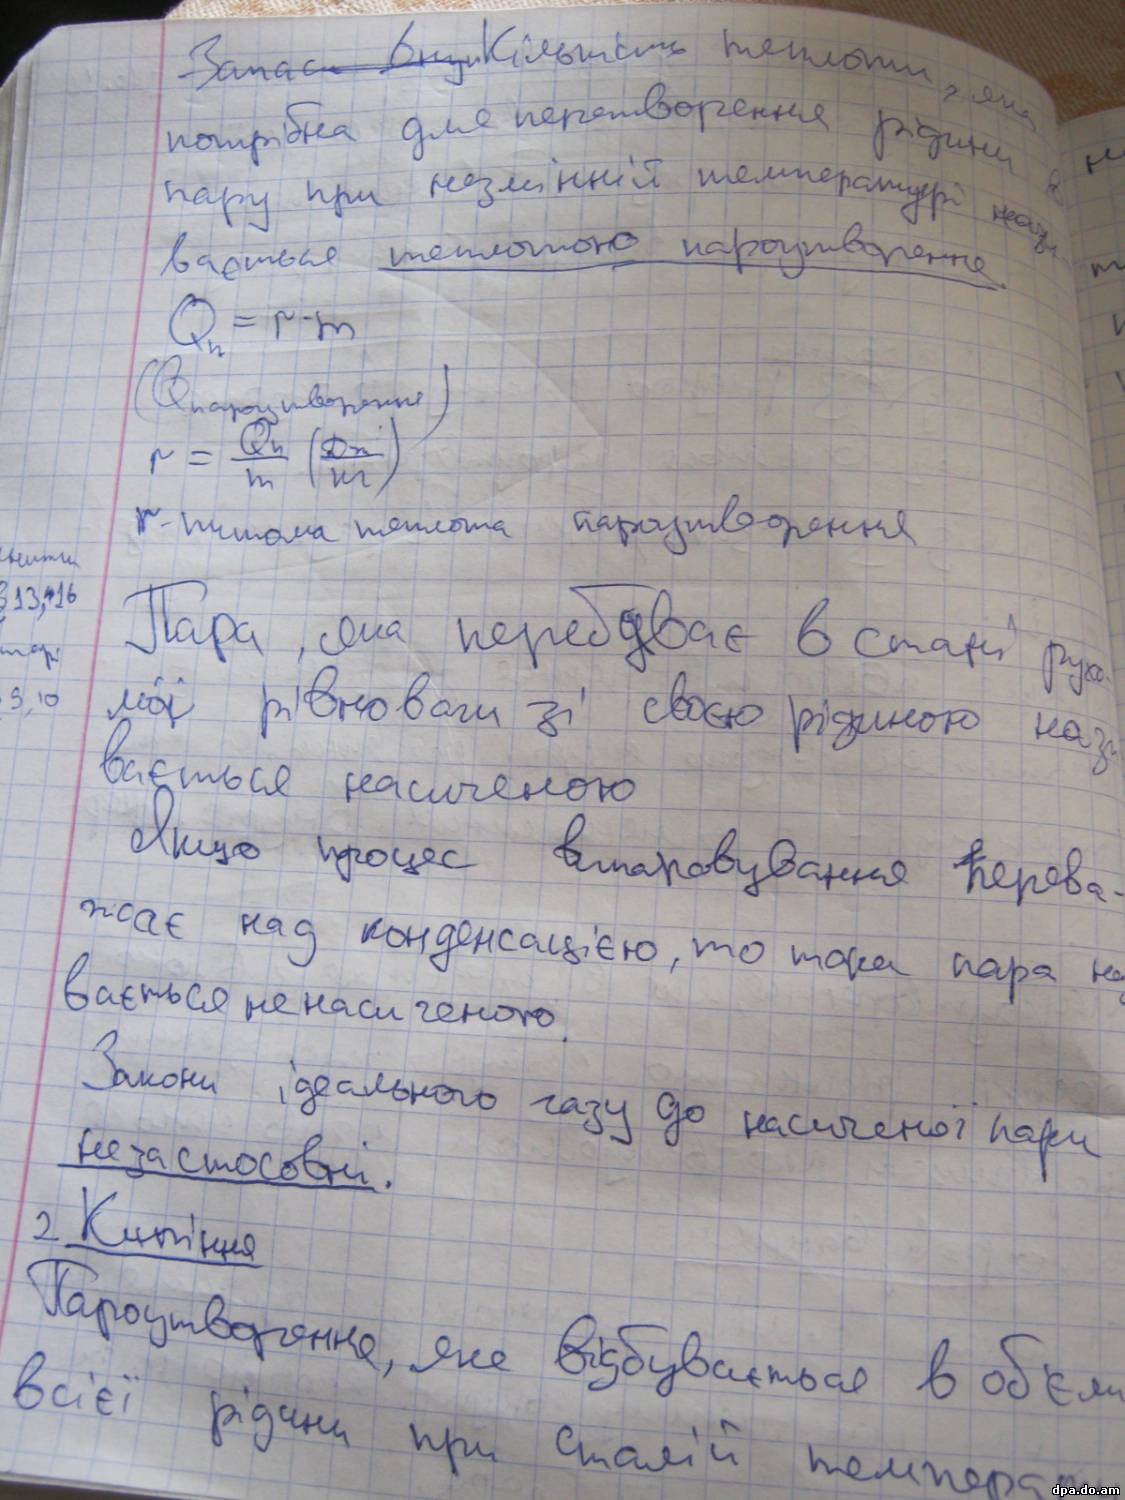 Запас внут Кількість теплоти, яка
потрібна для перетворення рідини в
пару при незмінній температурі нази-
вається теплотою пароутворення.
Qп = r·m
(Qпароутворення)
r = Qп/m (Дж/кг)
r - питома теплота пароутворення
Пара, яка перебуває в стані рухо-
мої рівноваги зі своєю рідиною нази
вається насиченою
Якщо процес випаровування перева-
жає над конденсацією, то така пара на
вається ненасиченою.
Закони ідеального газу до насиченої пари
незастосовні.
2 Кипіння
Пароутворення, яке відбувається в об'ємі
всієї рідини при сталій температ
13,16
9,10
dpa.do.am